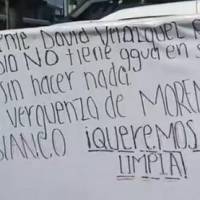 David Velázquez
NO tiene agua en s
sin hacer nada!
verguenza de MOREN
BLANCO ¡QUEREMOS
LIMPIA!